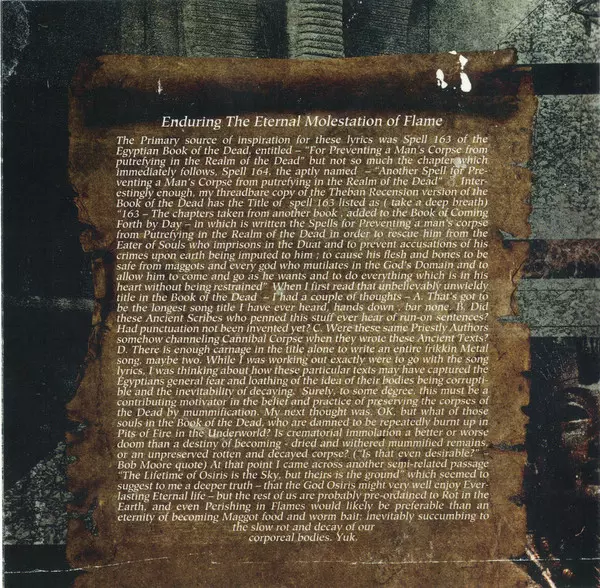 Enduring The Eternal Molestation of Flame
The Primary source of inspiration for these lyrics was Spell 163 of the
Egyptian Book of the Dead, entitled – "For Preventing a Man's Corpse from
putrefying in the Realm of the Dead" but not so much the chapter which
immediately follows, Spell 164, the aptly named – "Another Spell for Pre-
venting a Man's Corpse from putrefying in the Realm of the Dead" Inter-
estingly enough, my threadbare copy of the Theban Recension version of the
Book of the Dead has the Title of spell 163 listed as ( take a deep breath)
"163 – The chapters taken from another book , added to the Book of Coming
Forth by Day – in which is written the Spells for Preventing a man's corpse
from Putrefying in the Realm of the Dead in order to rescue him from the
Eater of Souls who imprisons in the Duat and to prevent accusations of his
crimes upon earth being imputed to him ; to cause his flesh and bones to be
safe from maggots and every god who mutilates in the God's Domain and to
allow him to come and go as he wants and to do everything which is in his
heart without being restrained" When I first read that unbelievably unwieldy
title in the Book of the Dead – I had a couple of thoughts – A. That's got to
be the longest song title I have ever heard, hands down , bar none. B. Did
these Ancient Scribes who penned this stuff ever hear of run-on sentences?
Had punctuation not been invented yet? C. Were these same Priestly Authors
somehow channeling Cannibal Corpse when they wrote these Ancient Texts?
D. There is enough carnage in the title alone to write an entire frikkin Metal
song, maybe two. While I was working out exactly were to go with the song
lyrics, I was thinking about how these particular texts may have captured the
Egyptians general fear and loathing of the idea of their bodies being corrupti-
ble and the inevitability of decaying. Surely, to some degree, this must be a
contributing motivator in the belief and practice of preserving the corpses of
the Dead by mummification. My next thought was, OK, but what of those
souls in the Book of the Dead, who are damned to be repeatedly burnt up in
Pits of Fire in the Underworld? Is crematorial immolation a better or worse
doom than a destiny of becoming - dried and withered mummified remains,
or an unpreserved rotten and decayed corpse? ("Is that even desirable?" –
Bob Moore quote) At that point I came across another semi-related passage
"The Lifetime of Osiris is the Sky, but theirs is the ground" which seemed to
suggest to me a deeper truth – that the God Osiris might very well enjoy Ever-
lasting Eternal life – but the rest of us are probably pre-ordained to Rot in the
Earth, and even Perishing in Flames would likely be preferable than an
eternity of becoming Maggot food and worm bait; inevitably succumbing to
the slow rot and decay of our
corporeal bodies. Yuk.